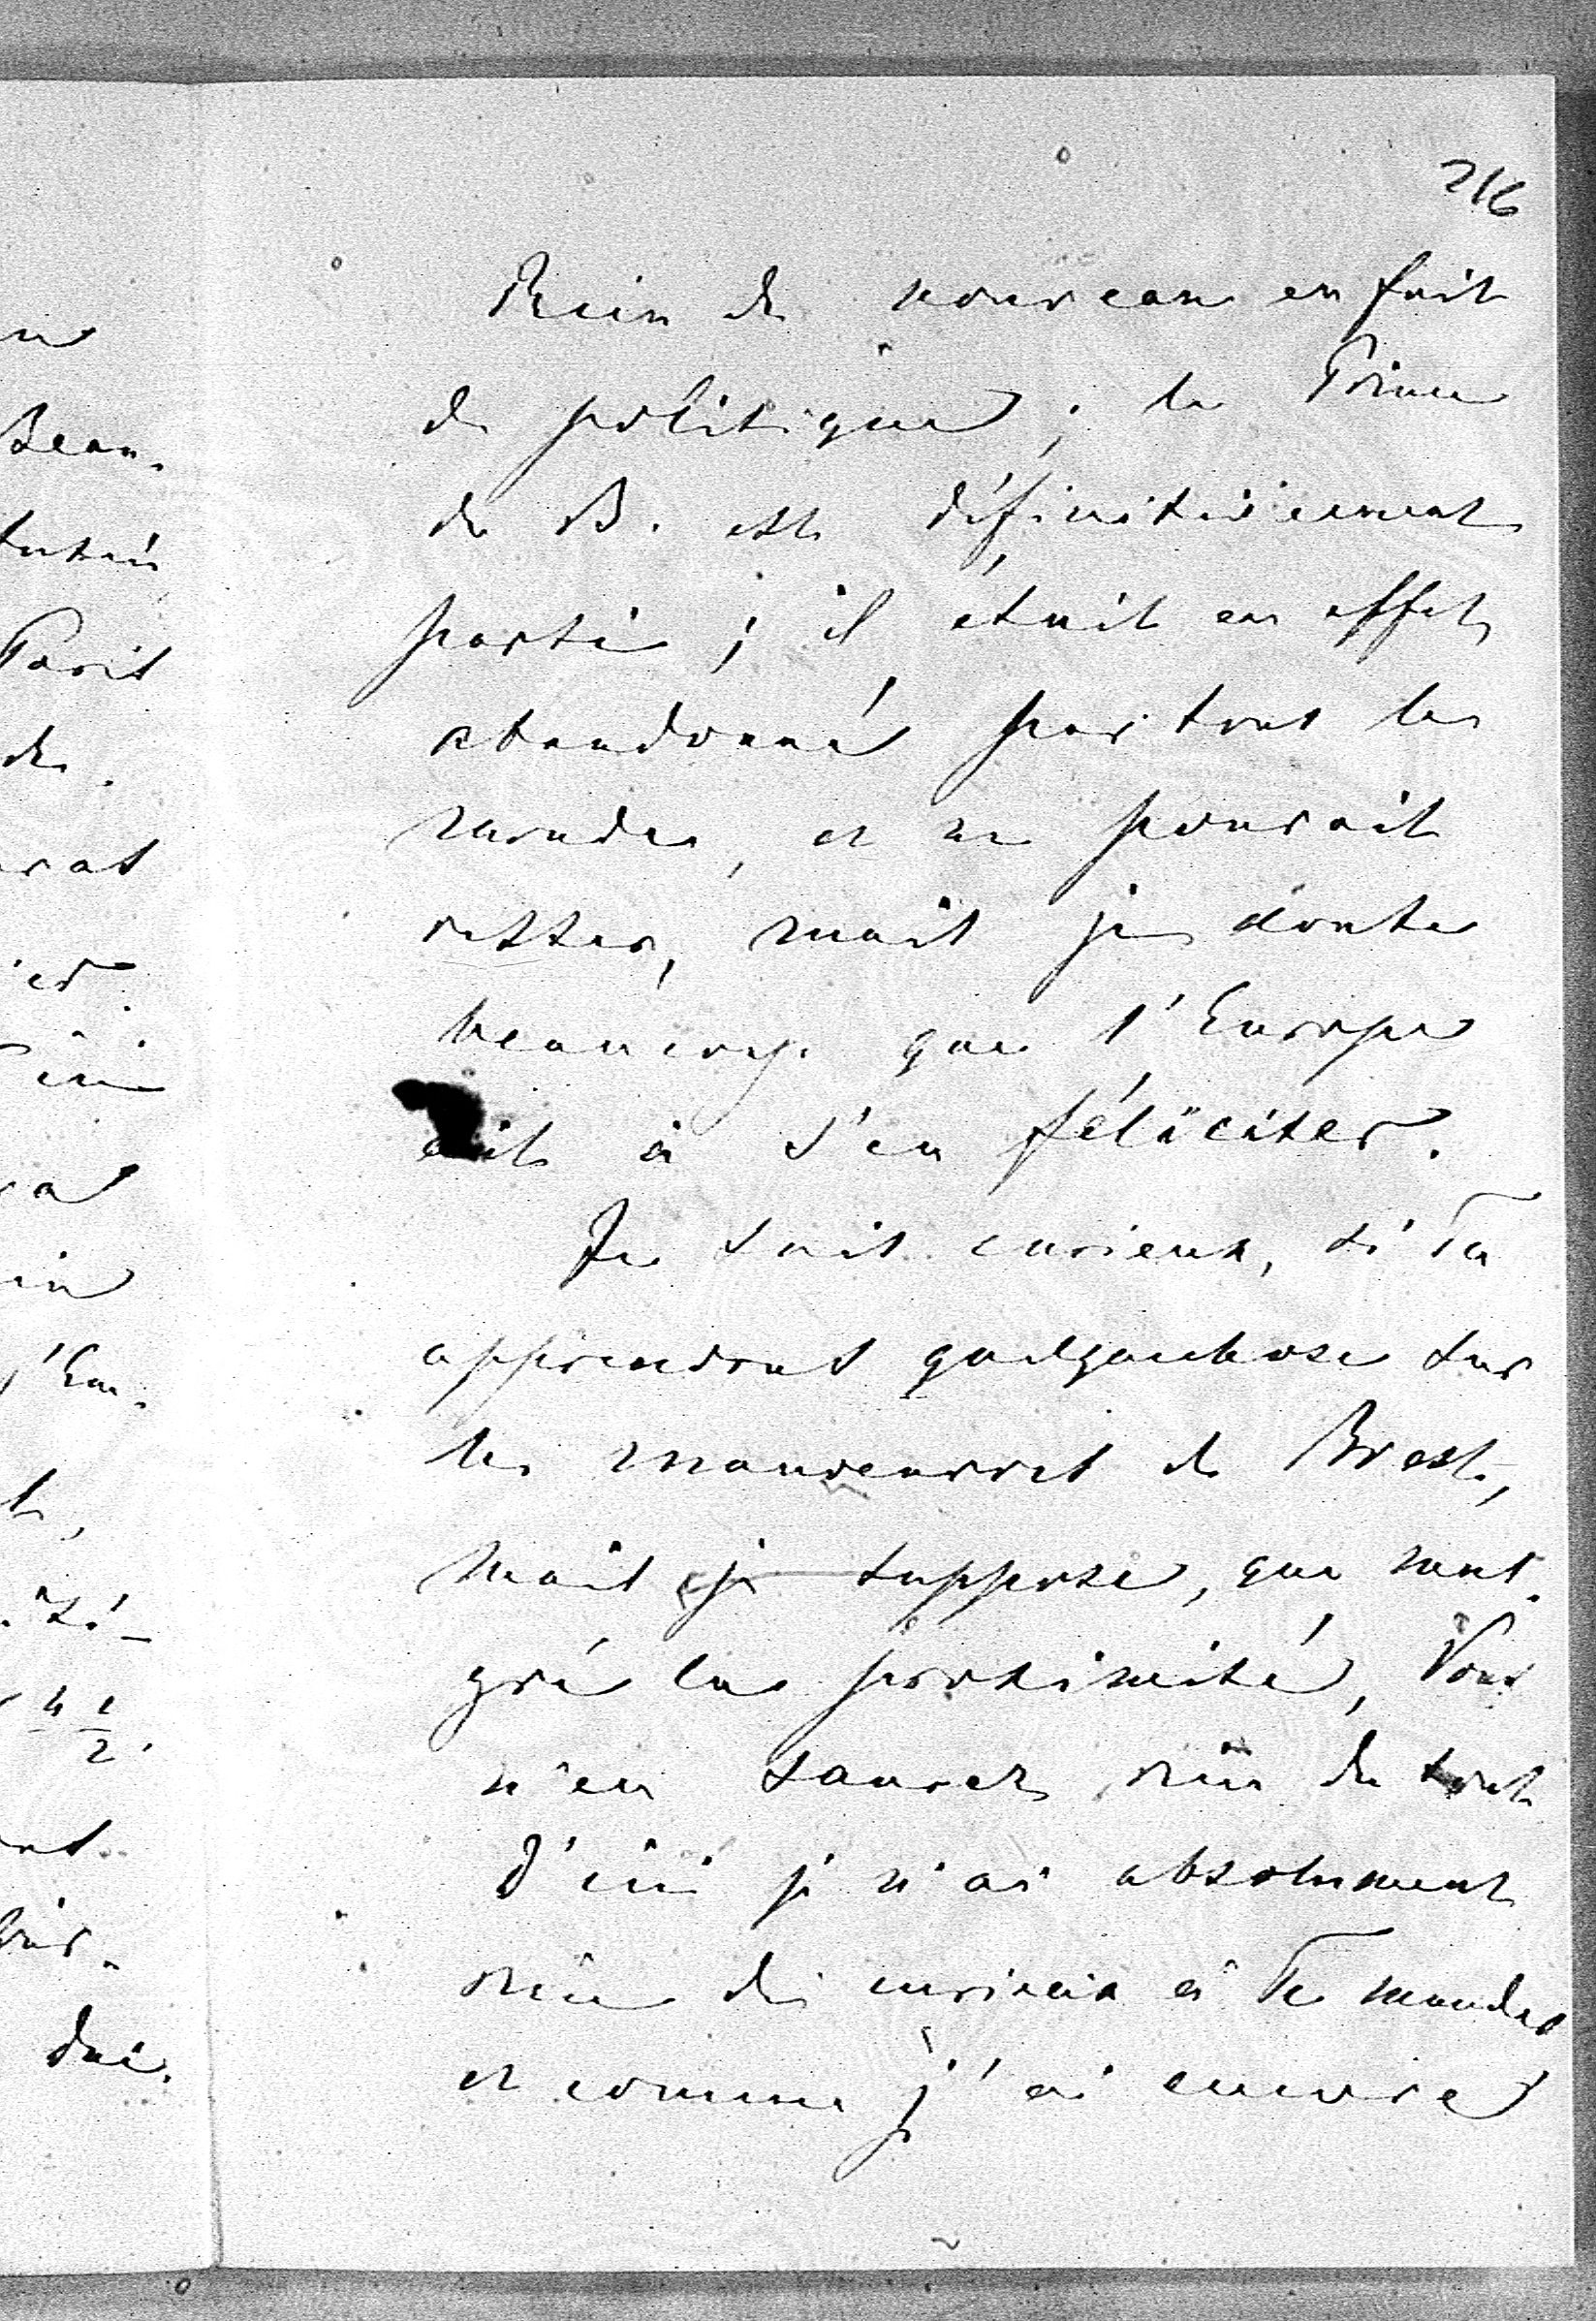 216
Rien de nouveau en fait
de politique; le Prince
de B. est définitivement
parti; il était en effet
abandonné par tout le
monde, et ne pouvait
rester, mais je doute
beaucoup que l'Europe
ait à s'en féliciter.
Je suis curieux, si Tu
apprendras quelquechose sur
les manoeuvres de Brest,
mais je suppose, que mal-
gré la proximité, Vous
n'en saurez rien du tout
D'ici je n'ai absolument
rien de curieux à Te mander
et comme j'ai encore